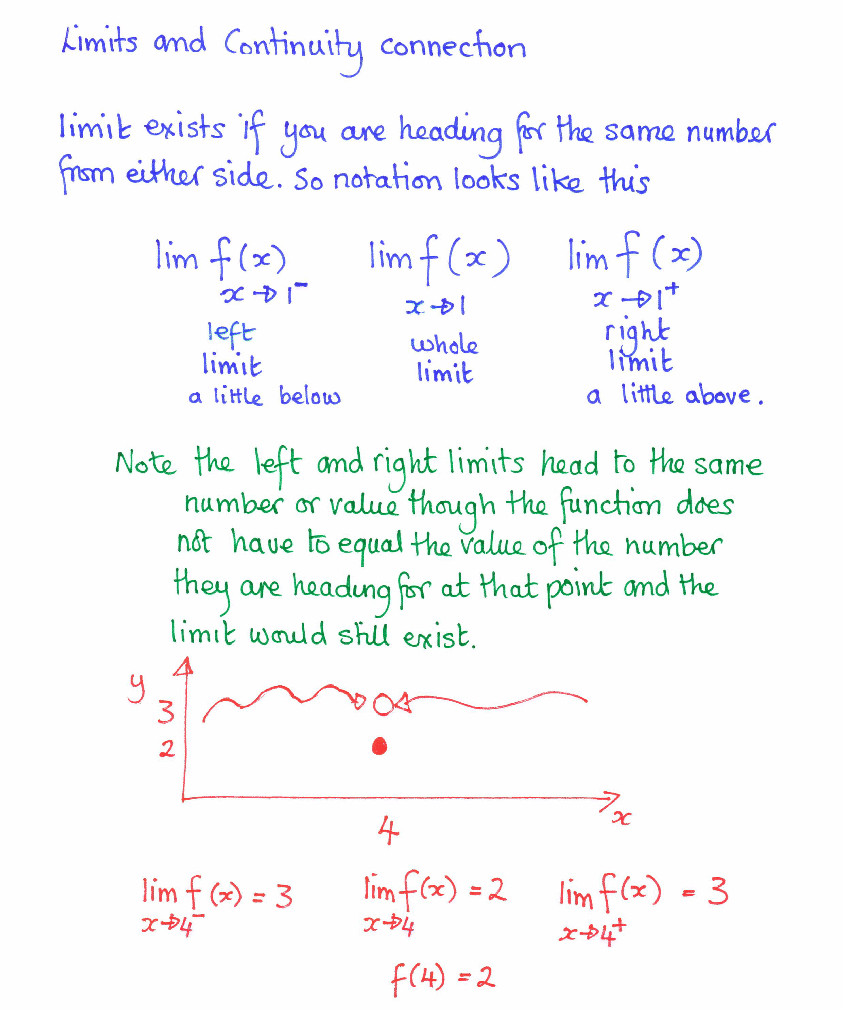 Limits and Continuity connection
limit exists if you are heading for the same number
from either side. So notation looks like this
lim f(x) lim f(x) lim f(x)
x→1⁻ x→1 x→1⁺
left whole right
limit limit limit
a little below a little above.
Note the left and right limits head to the same
number or value though the function does
not have to equal the value of the number
they are heading for at that point and the
limit would still exist.
y
3
2
x
4
lim f(x) = 3 lim f(x) = 2 lim f(x) = 3
x→4⁻ x→4 x→4⁺
f(4) = 2